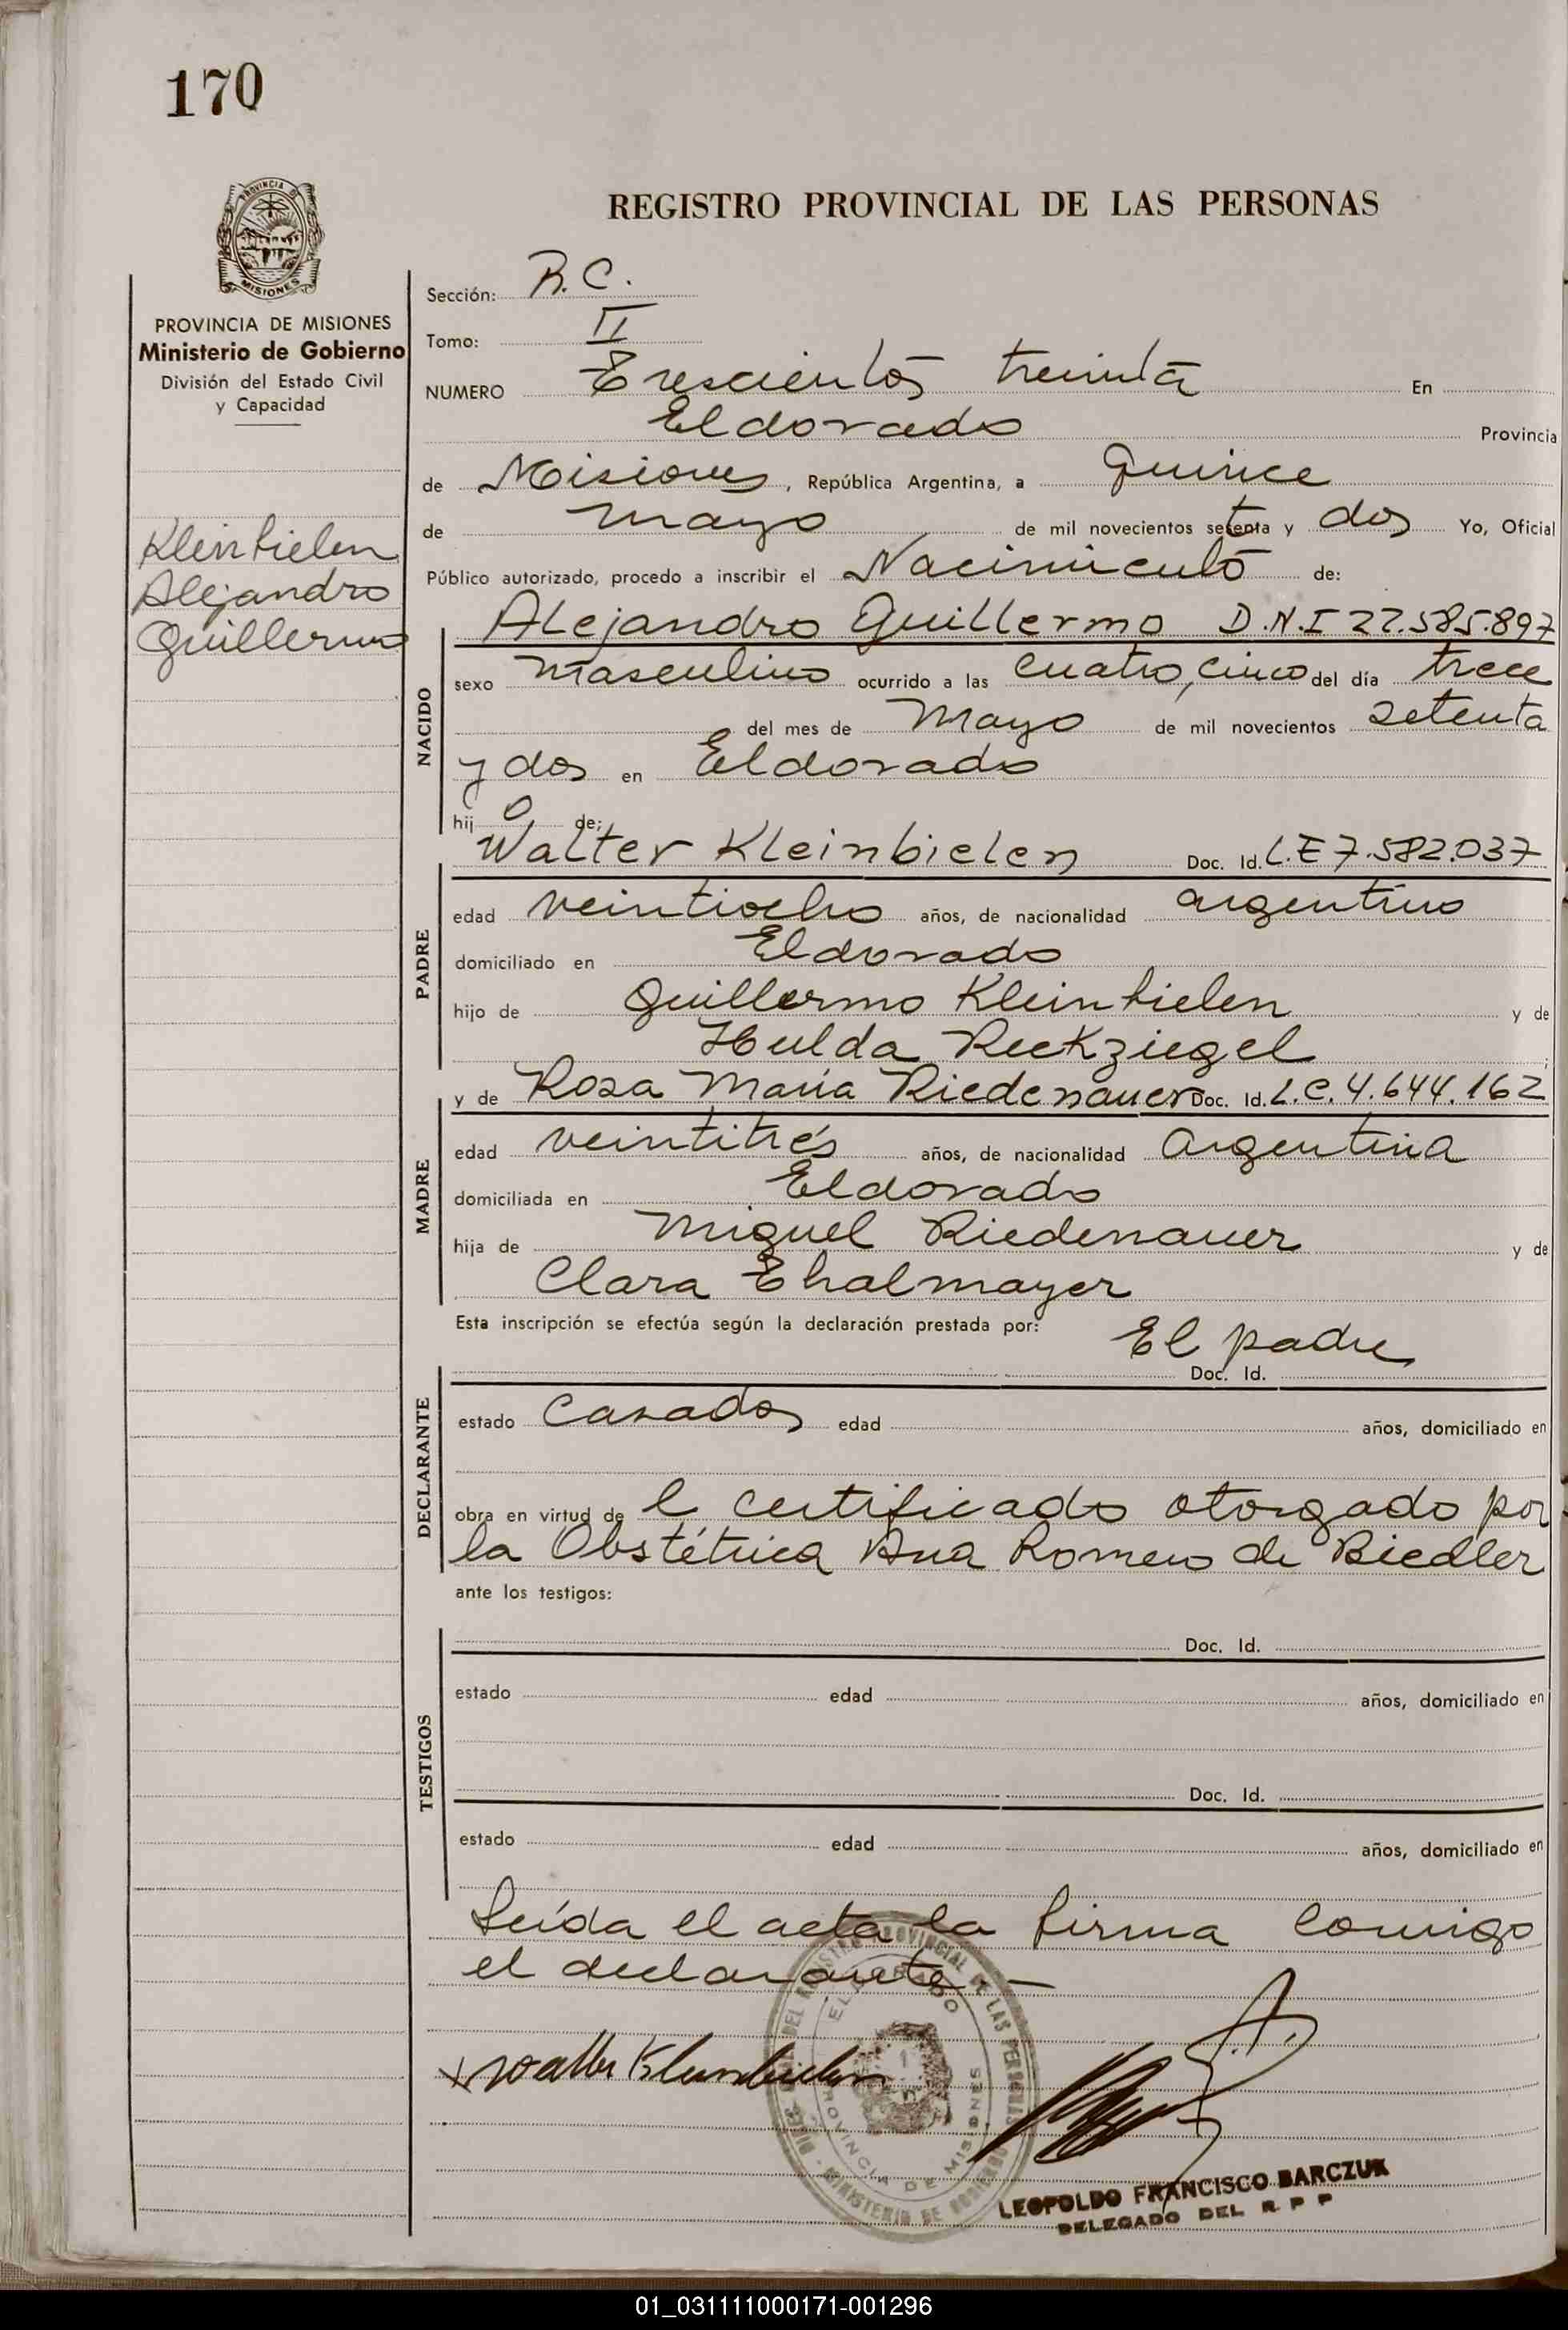 170
PROVINCIA DE
MISIONES
PROVINCIA DE MISIONES
Ministerio de Gobierno
División del Estado Civil
y Capacidad
Kleinbielen
Alejandro
Guillermo
REGISTRO PROVINCIAL DE LAS PERSONAS
Sección: R.C.
Tomo: II
NUMERO Trescientos treinta En
Eldorado Provincia
de Misiones, República Argentina, a Quince
de mayo de mil novecientos setenta y dos Yo, Oficial
Público autorizado, procedo a inscribir el Nacimiento de:
NACIDO
Alejandro Guillermo D.N.I 22.585.897
sexo masculino ocurrido a las cuatro, cinco del día trece
del mes de Mayo de mil novecientos setenta
y dos en Eldorado
hijo de:
PADRE
Walter Kleinbielen Doc. Id. L.E 7.582.037
edad veintiocho años, de nacionalidad argentino
domiciliado en Eldorado
hijo de Guillermo Kleinbielen y de
Hulda Reckziegel
MADRE
y de Rosa Maria Riedenauer Doc. Id. L.C. 4.644.162
edad veintitrés años, de nacionalidad Argentina
domiciliada en Eldorado
hija de Miguel Riedenauer y de
Clara Thalmayer
Esta inscripción se efectúa según la declaración prestada por: El padre
DECLARANTE
Doc. Id.
estado Casados edad años, domiciliado en
obra en virtud de l certificado otorgado por
la Obstétrica Ana Romero de Biedler
ante los testigos:
TESTIGOS
Doc. Id.
estado edad años, domiciliado en
Doc. Id.
estado edad años, domiciliado en
Leída el acta la firma Conmigo
el declarante.—
x Walter Kleinbielen
EL DORADO
PROVINCIA DE MISIONES
MINISTERIO DE GOBIERNO
LEOPOLDO FRANCISCO BARCZUK
DELEGADO DEL R P P
01_031111000171-001296